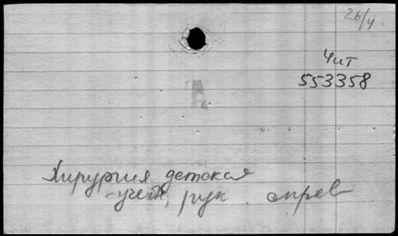 2б/4
Чит
553358
А
Хирургия детская
-учеб, рук. справ